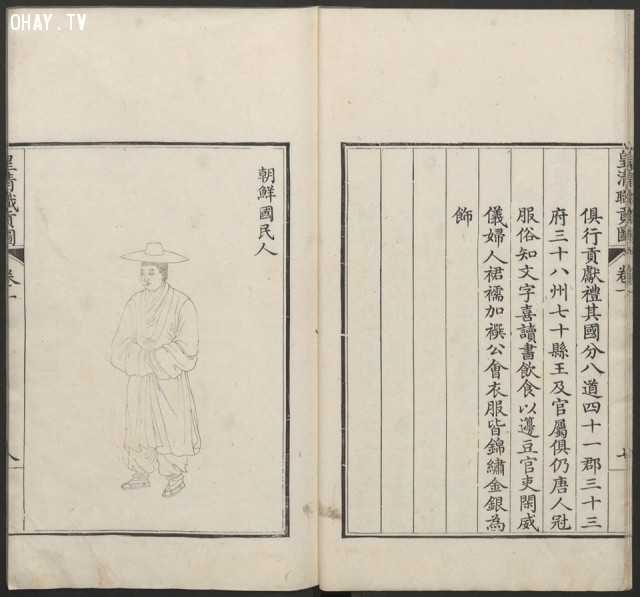 OHAY.TV
皇清職貢圖 卷一 七
俱行貢獻禮其國分八道四十一郡三十三
府三十八州七十縣王及官屬俱仍唐人冠
服俗知文字喜讀書飲食以籩豆官吏閑威
儀婦人裙襦加襈公會衣服皆錦繡金銀為
飾
朝鮮國民人
皇清職貢圖 卷一 八